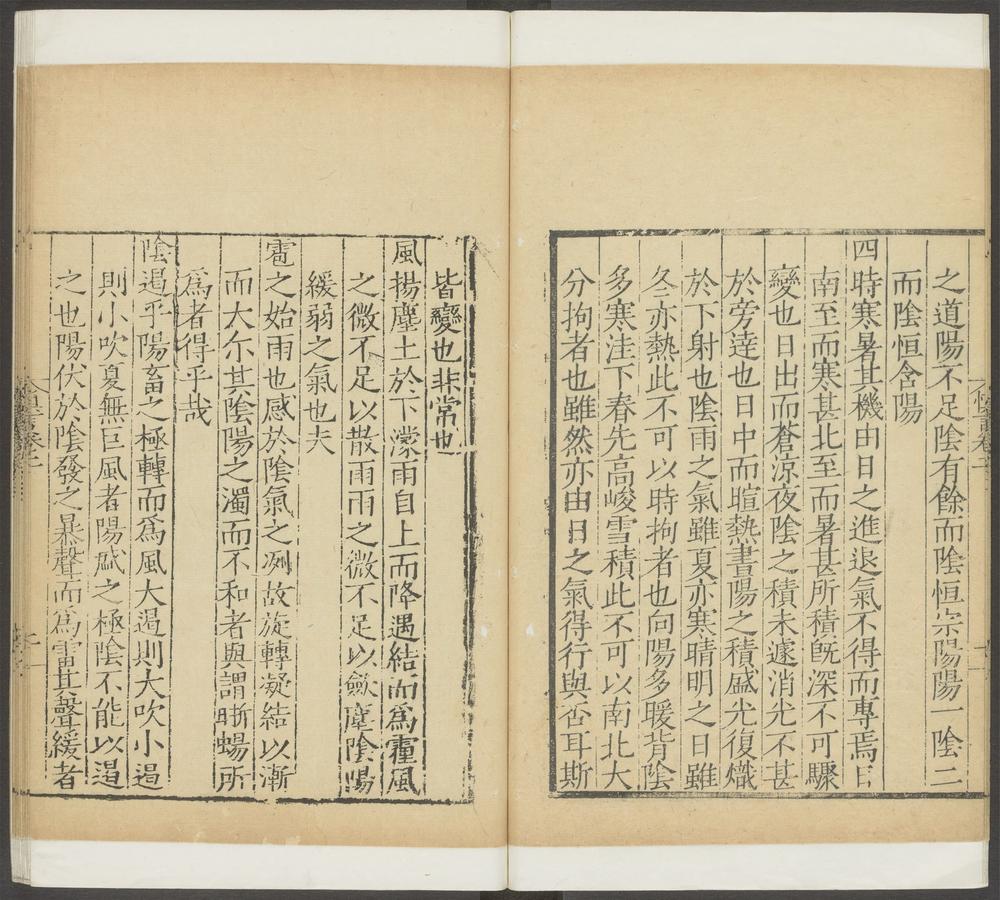 之道陽不足陰有餘而陰恒宗陽陽一陰二
而陰恒含陽
四時寒暑其機由日之進退氣不得而專焉日
南至而寒甚北至而暑甚所積旣深不可驟
變也日出而蒼凉夜陰之積未遽消光不甚
於旁達也日中而暄熱晝陽之積盛光復熾
於下射也陰雨之氣雖夏亦寒晴明之日雖
冬亦熱此不可以時拘者也向陽多暖背陰
多寒洼下春先高峻雪積此不可以南北大
分拘者也雖然亦由日之氣得行與否耳斯
皆變也非常也
風揚塵土於下濛雨自上而降遇結而爲霾風
之微不足以散雨雨之微不足以歛塵陰陽
緩弱之氣也夫
雹之始雨也感於陰氣之冽故旋轉凝結以漸
而大尔其陰陽之濁而不和者與謂蜥蜴所
爲者得乎哉
陰遏乎陽畜之極轉而爲風大遏則大吹小遏
則小吹夏無巨風者陽〾之極陰不能以遏
之也陽伏於陰發之暴聲而爲雷其聲緩者